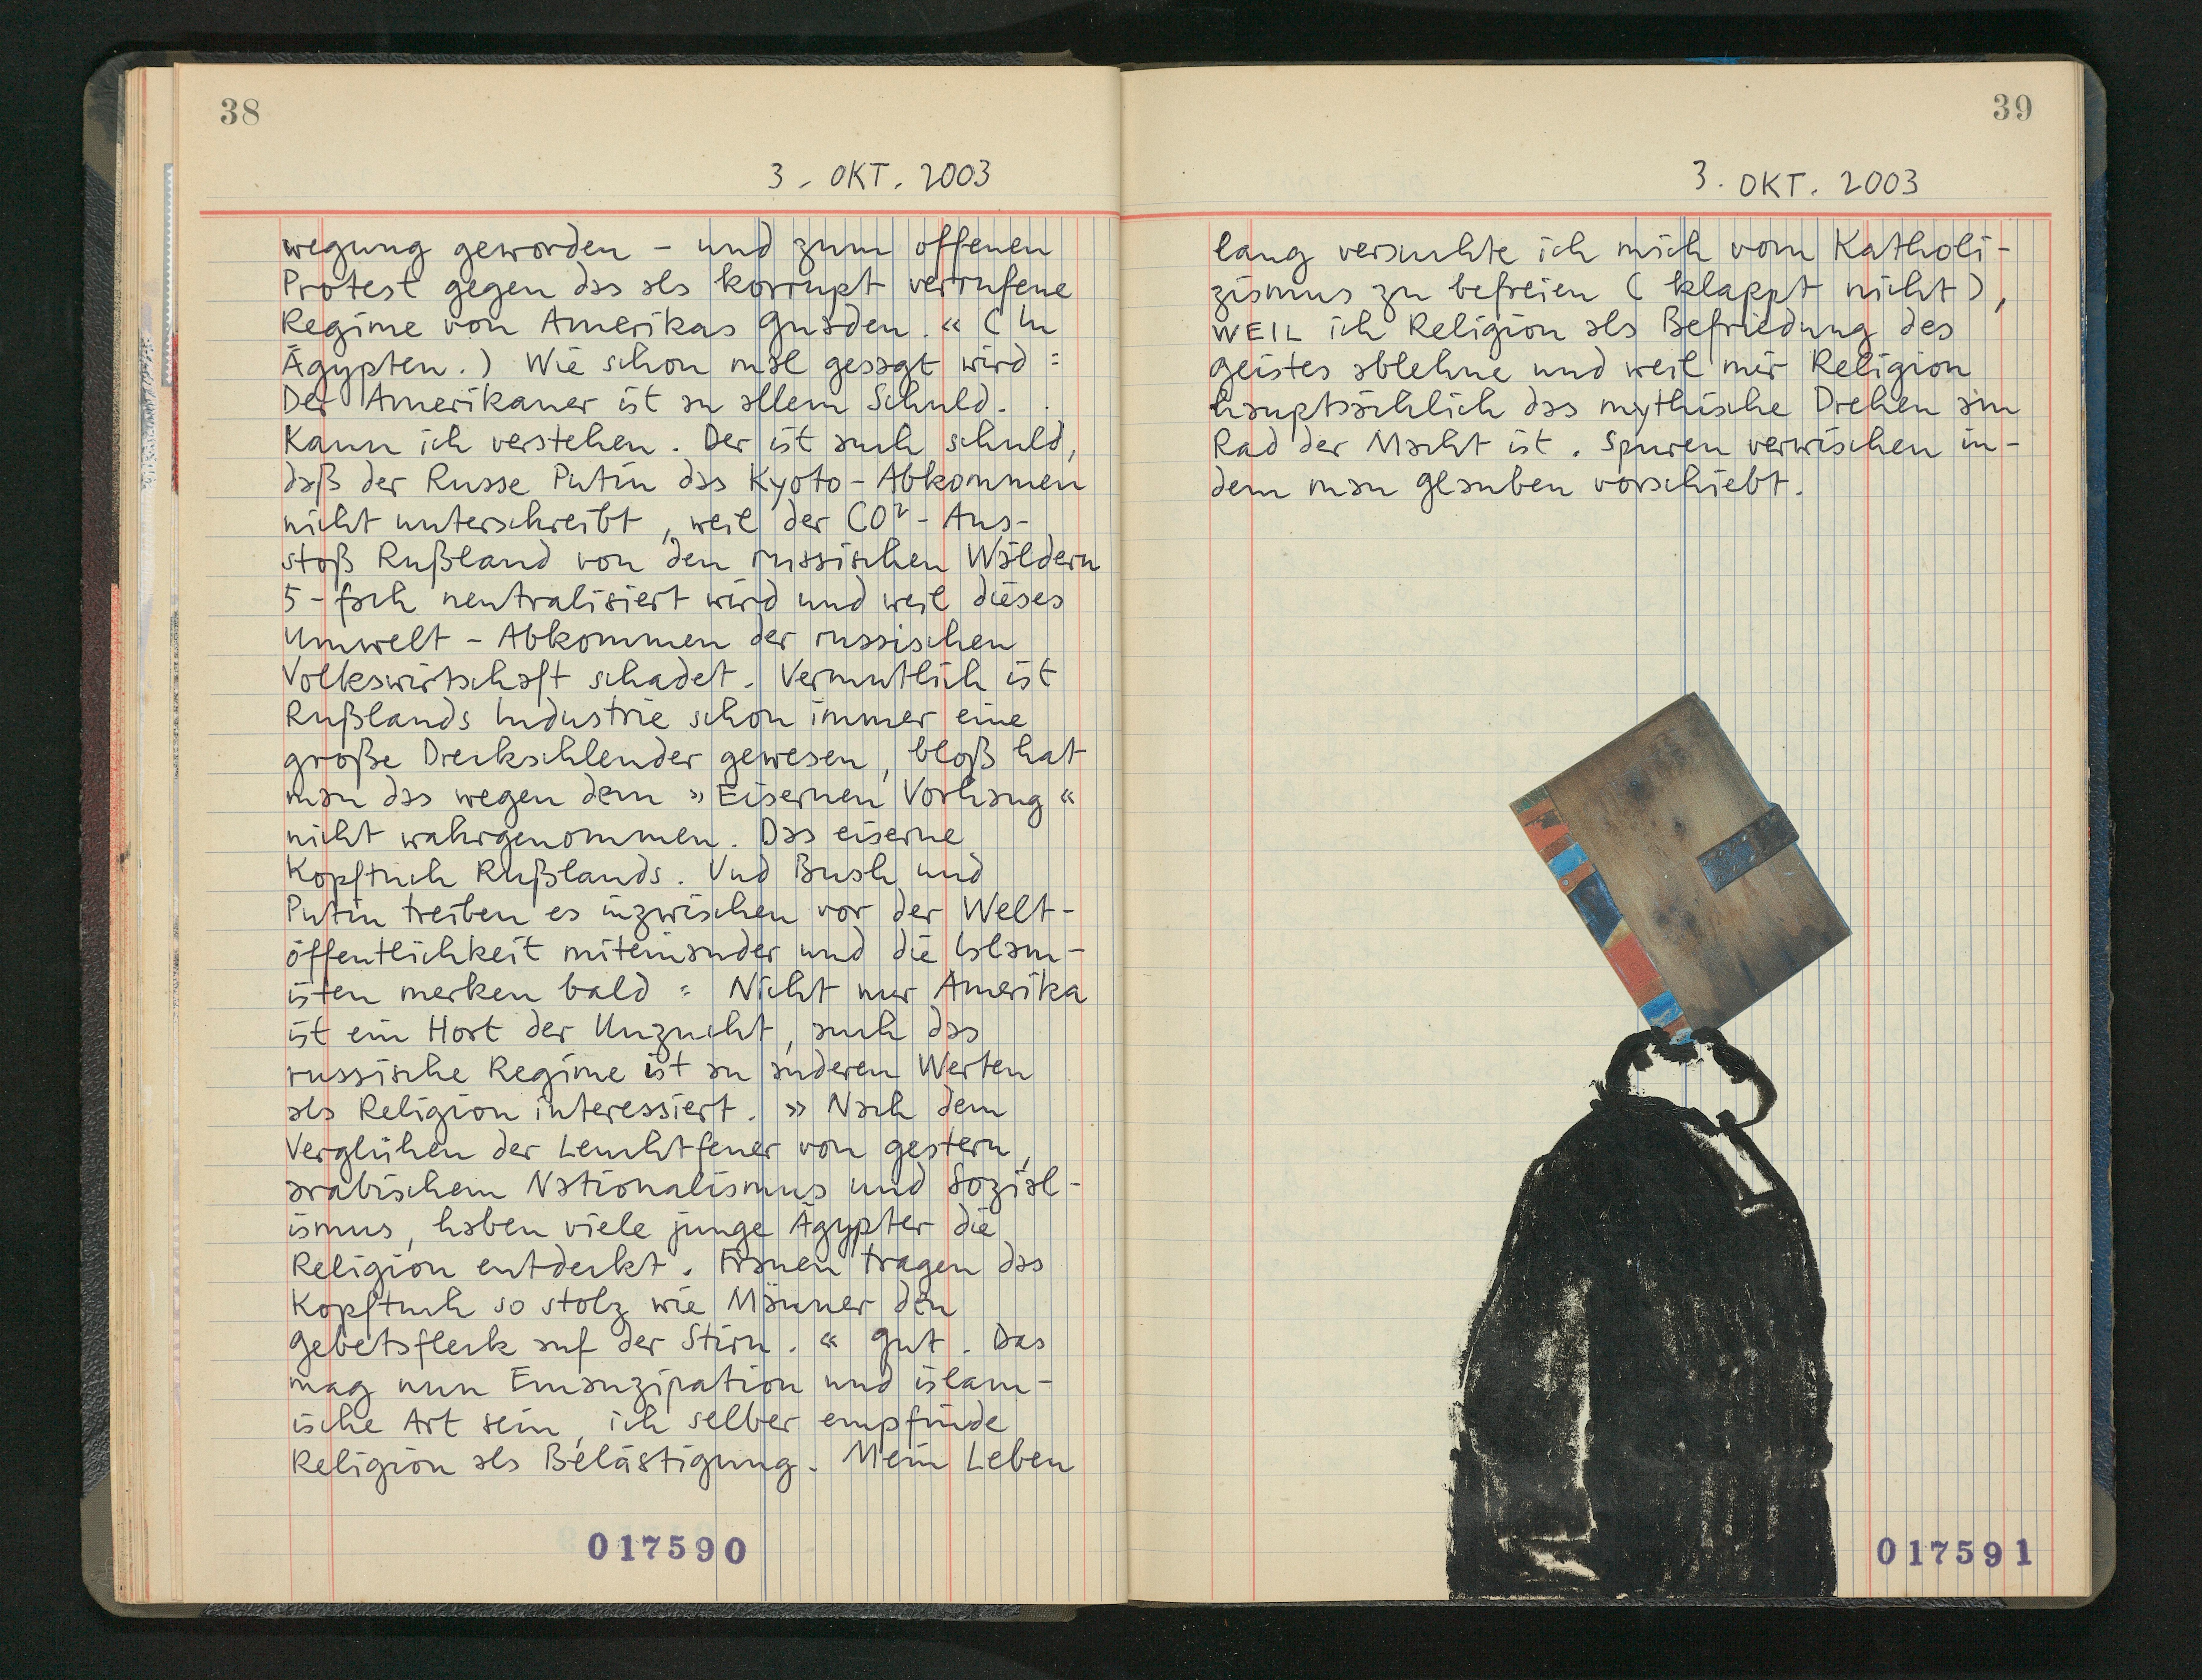 38
3. OKT. 2003
wegung geworden – und zum offenen
Protest gegen das als korrupt verrufene
Regime von Amerikas Gnaden.« (In
Ägypten.) Wie schon mal gesagt wird:
Der Amerikaner ist an allem Schuld.
Kann ich verstehen. Der ist auch schuld,
daß der Russe Putin das Kyoto-Abkommen
nicht unterschreibt, weil der CO²-Aus-
stoß Rußland von den russischen Wäldern
5-fach neutralisiert wird und weil dieses
Umwelt-Abkommen der russischen
Volkswirtschaft schadet. Vermutlich ist
Rußlands Industrie schon immer eine
große Dreckschleuder gewesen, bloß hat
man das wegen dem »Eisernen Vorhang«
nicht wahrgenommen. Das eiserne
Kopftuch Rußlands. Und Bush und
Putin treiben es inzwischen vor der Welt-
öffentlichkeit miteinander und die Islam-
isten merken bald: Nicht nur Amerika
ist ein Hort der Unzucht, auch das
russische Regime ist an anderen Werten
als Religion interessiert. »Nach dem
Verglühen der Leuchtfeuer von gestern,
arabischem Nationalismus und Sozial-
ismus, haben viele junge Ägypter die
Religion entdeckt. Frauen tragen das
Kopftuch so stolz wie Männer den
Gebetsfleck auf der Stirn.« Gut. Das
mag nun Emanzipation und islam-
ische Art sein, ich selber empfinde
Religion als Belästigung. Mein Leben
017590
39
3. OKT. 2003
lang versuchte ich mich vom Katholi-
zismus zu befreien (klappt nicht),
WEIL ich Religion als Befriedung des
Geistes ablehne und weil mir Religion
hauptsächlich das mythische Drehen am
Rad der Macht ist. Spuren verwischen in-
dem man Glauben vorschiebt.
017591